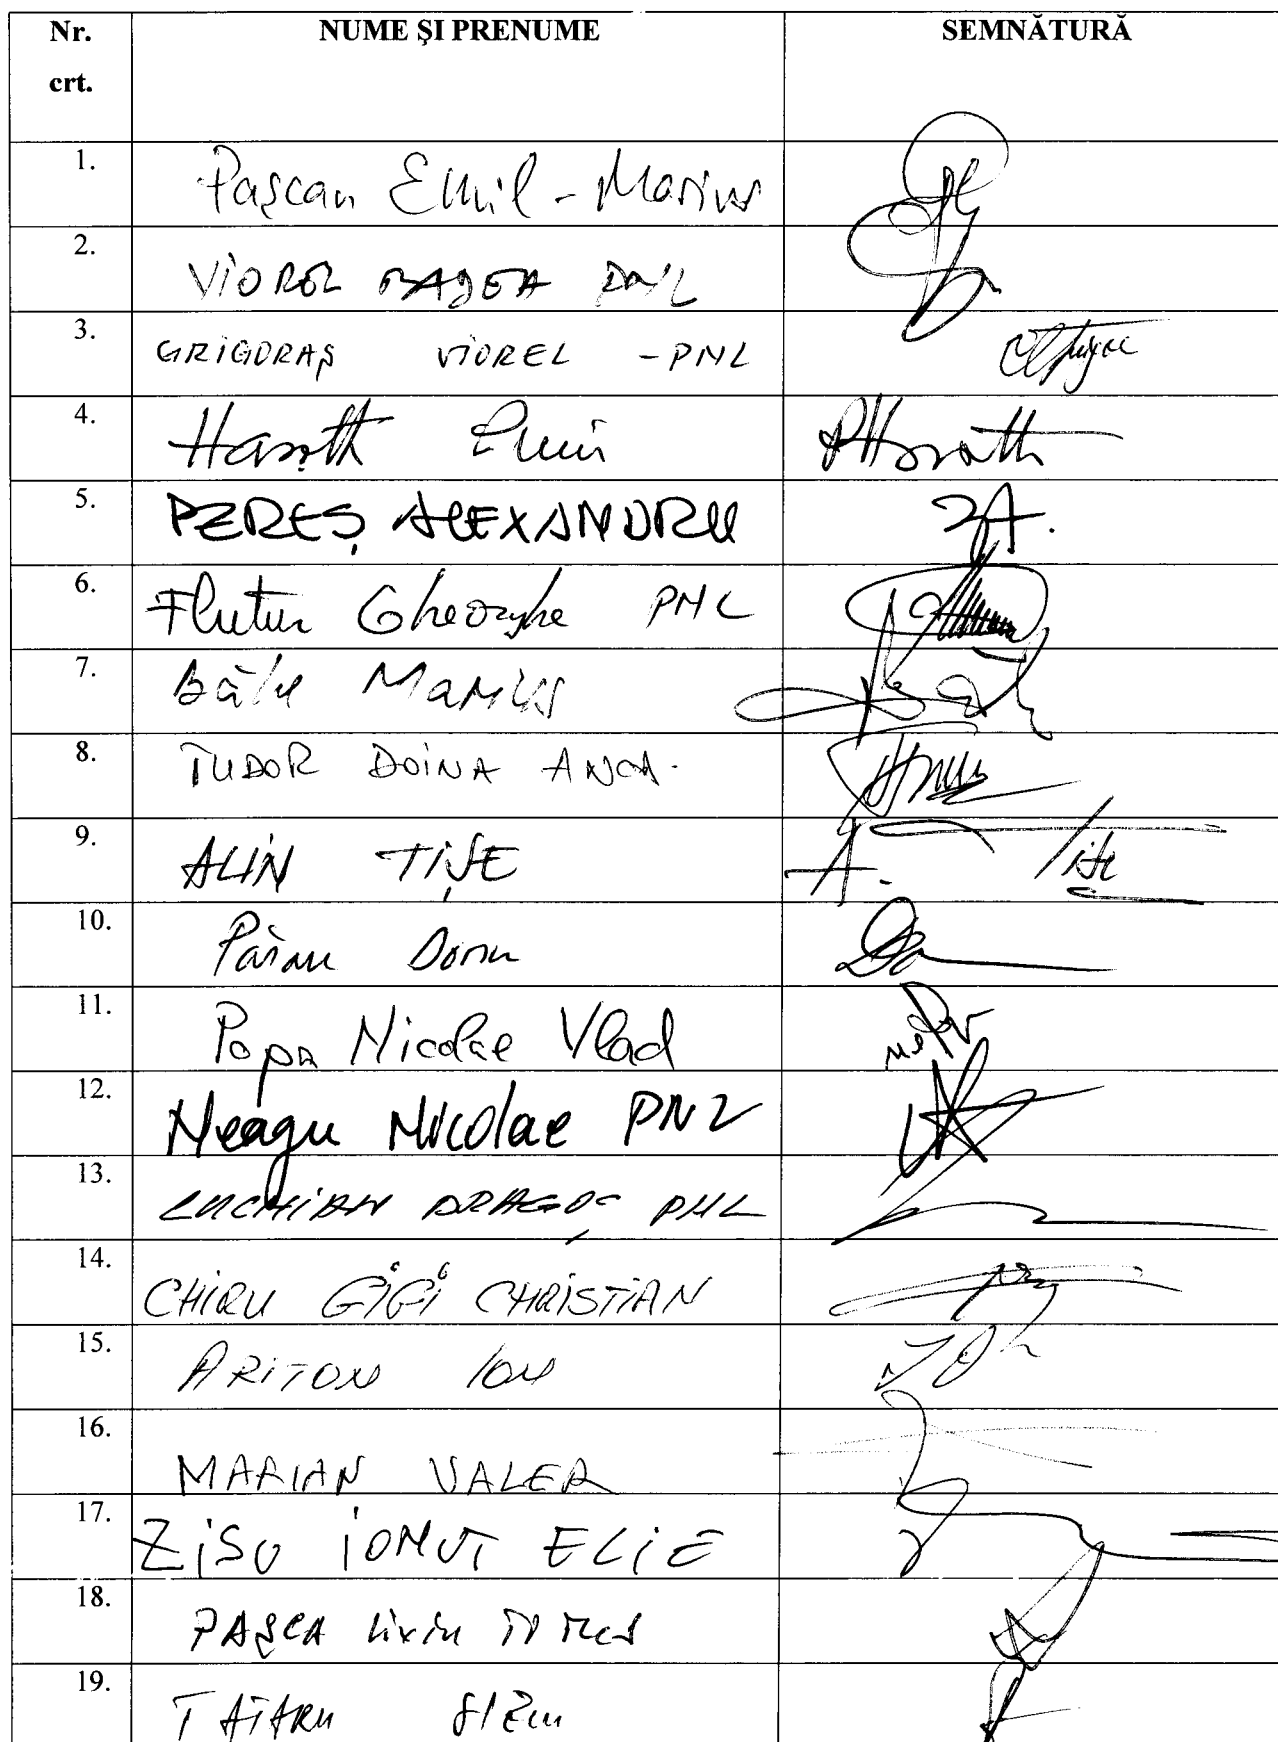 Nr. crt. NUME ŞI PRENUME SEMNĂTURĂ
1. Paşcan Emil - Marius
2. VIOREL BADEA PNL
3. GRIGORAŞ VIOREL - PNL
4. Horvath
5. PEREŞ ALEXANDRU
6. Flutur Gheorghe PNL
7. Bâlu Marius
8. TUDOR DOINA ANCA.
9. ALIN TIŞE
10. Părău Dorin
11. Popa Nicolae Vlad
12. Neagu Nicolae PNL
13. LUCHIAN DRAGOŞ PNL
14. CHIRU GIGI CHRISTIAN
15. ARITON ION
16. MARIAN VALER
17. ZISU IONUT ELIE
18. PAŞCA Liviu
19. TATARU